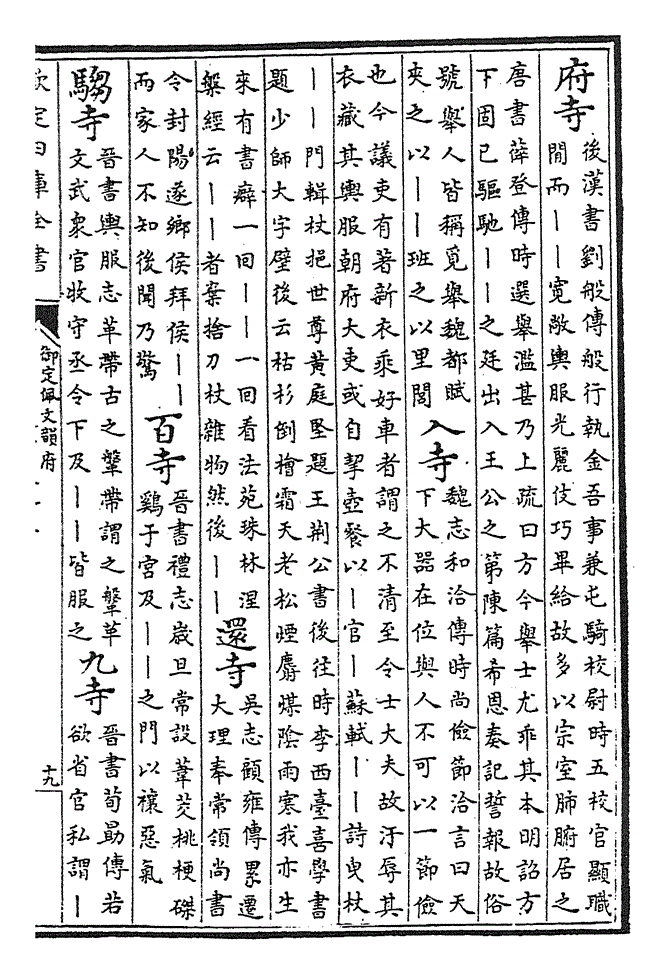 府寺
後漢書劉般傳般行執金吾事兼屯騎校尉時五校官顯職
閒而丨丨寬敞輿服光麗伎巧畢給故多以宗室肺腑居之
唐書薛登傳時選舉濫甚乃上疏曰方今舉士尤乖其本明詔方
下固已驅馳丨丨之廷出入王公之第陳篇希恩奏記誓報故俗
號舉人皆稱覓舉魏都賦
夾之以丨丨班之以里閭
入寺
魏志和洽傳時尚儉節洽言曰天
下大器在位與人不可以一節儉
也今議吏有著新衣乘好車者謂之不清至令士大夫故汙辱其
衣藏其輿服朝府大吏或自挈壺餐以丨官丨蘇軾丨丨詩曳杖
丨丨門輯杖挹世尊黃庭堅題王荊公書後往時李西臺喜學書
題少師大字壁後云枯杉倒檜霜天老松煙麝煤陰雨寒我亦生
來有書癖一回丨丨一回看法苑珠林涅
槃經云丨丨者案捨刀杖雜物然後丨丨
還寺
吳志顧雍傳累遷
大理奉常領尚書
令封陽遂鄉侯拜侯丨丨
而家人不知後聞乃驚
百寺
晉書禮志歲旦常設葦茭桃梗磔
雞于宮及丨丨之門以禳惡氣
騶寺
晉書輿服志革帶古之鞶帶謂之鞶革
文武衆官牧守丞令下及丨丨皆服之
九寺
晉書荀勗傳若
欲省官私謂丨
欽定四庫全書
御定佩文韻府
十九